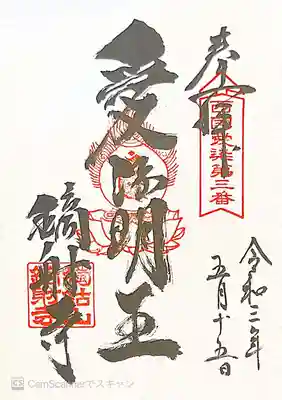 奉拝
西国愛染第三番
令和三年
五月十五日
愛染明王
鏑射寺
CS CamScannerでスキャン